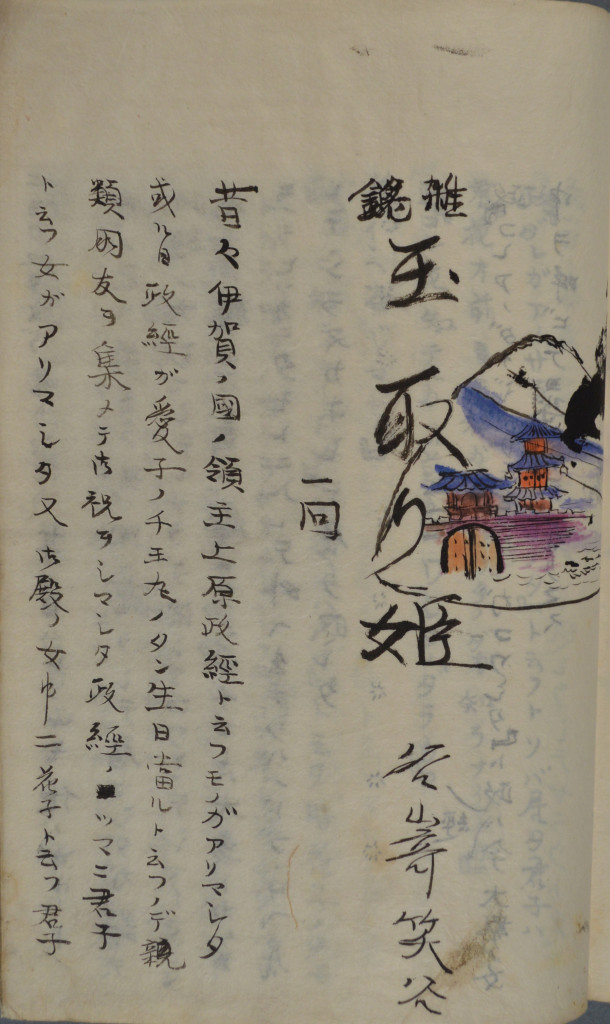 玉取り姫 谷嵜笑谷
一回
昔々伊賀ノ國ノ領主上原政經ト云フモノガアリマシタ
或ル日政經ガ愛子ノ千王丸ノタン生日當ルト云フノデ親
類朋友ヲ集メテ御祝ヲシマシタ政經ノツマニ君子
ト云フ女ガアリマシタ又御殿ノ女中ニ花子ト云フ君子